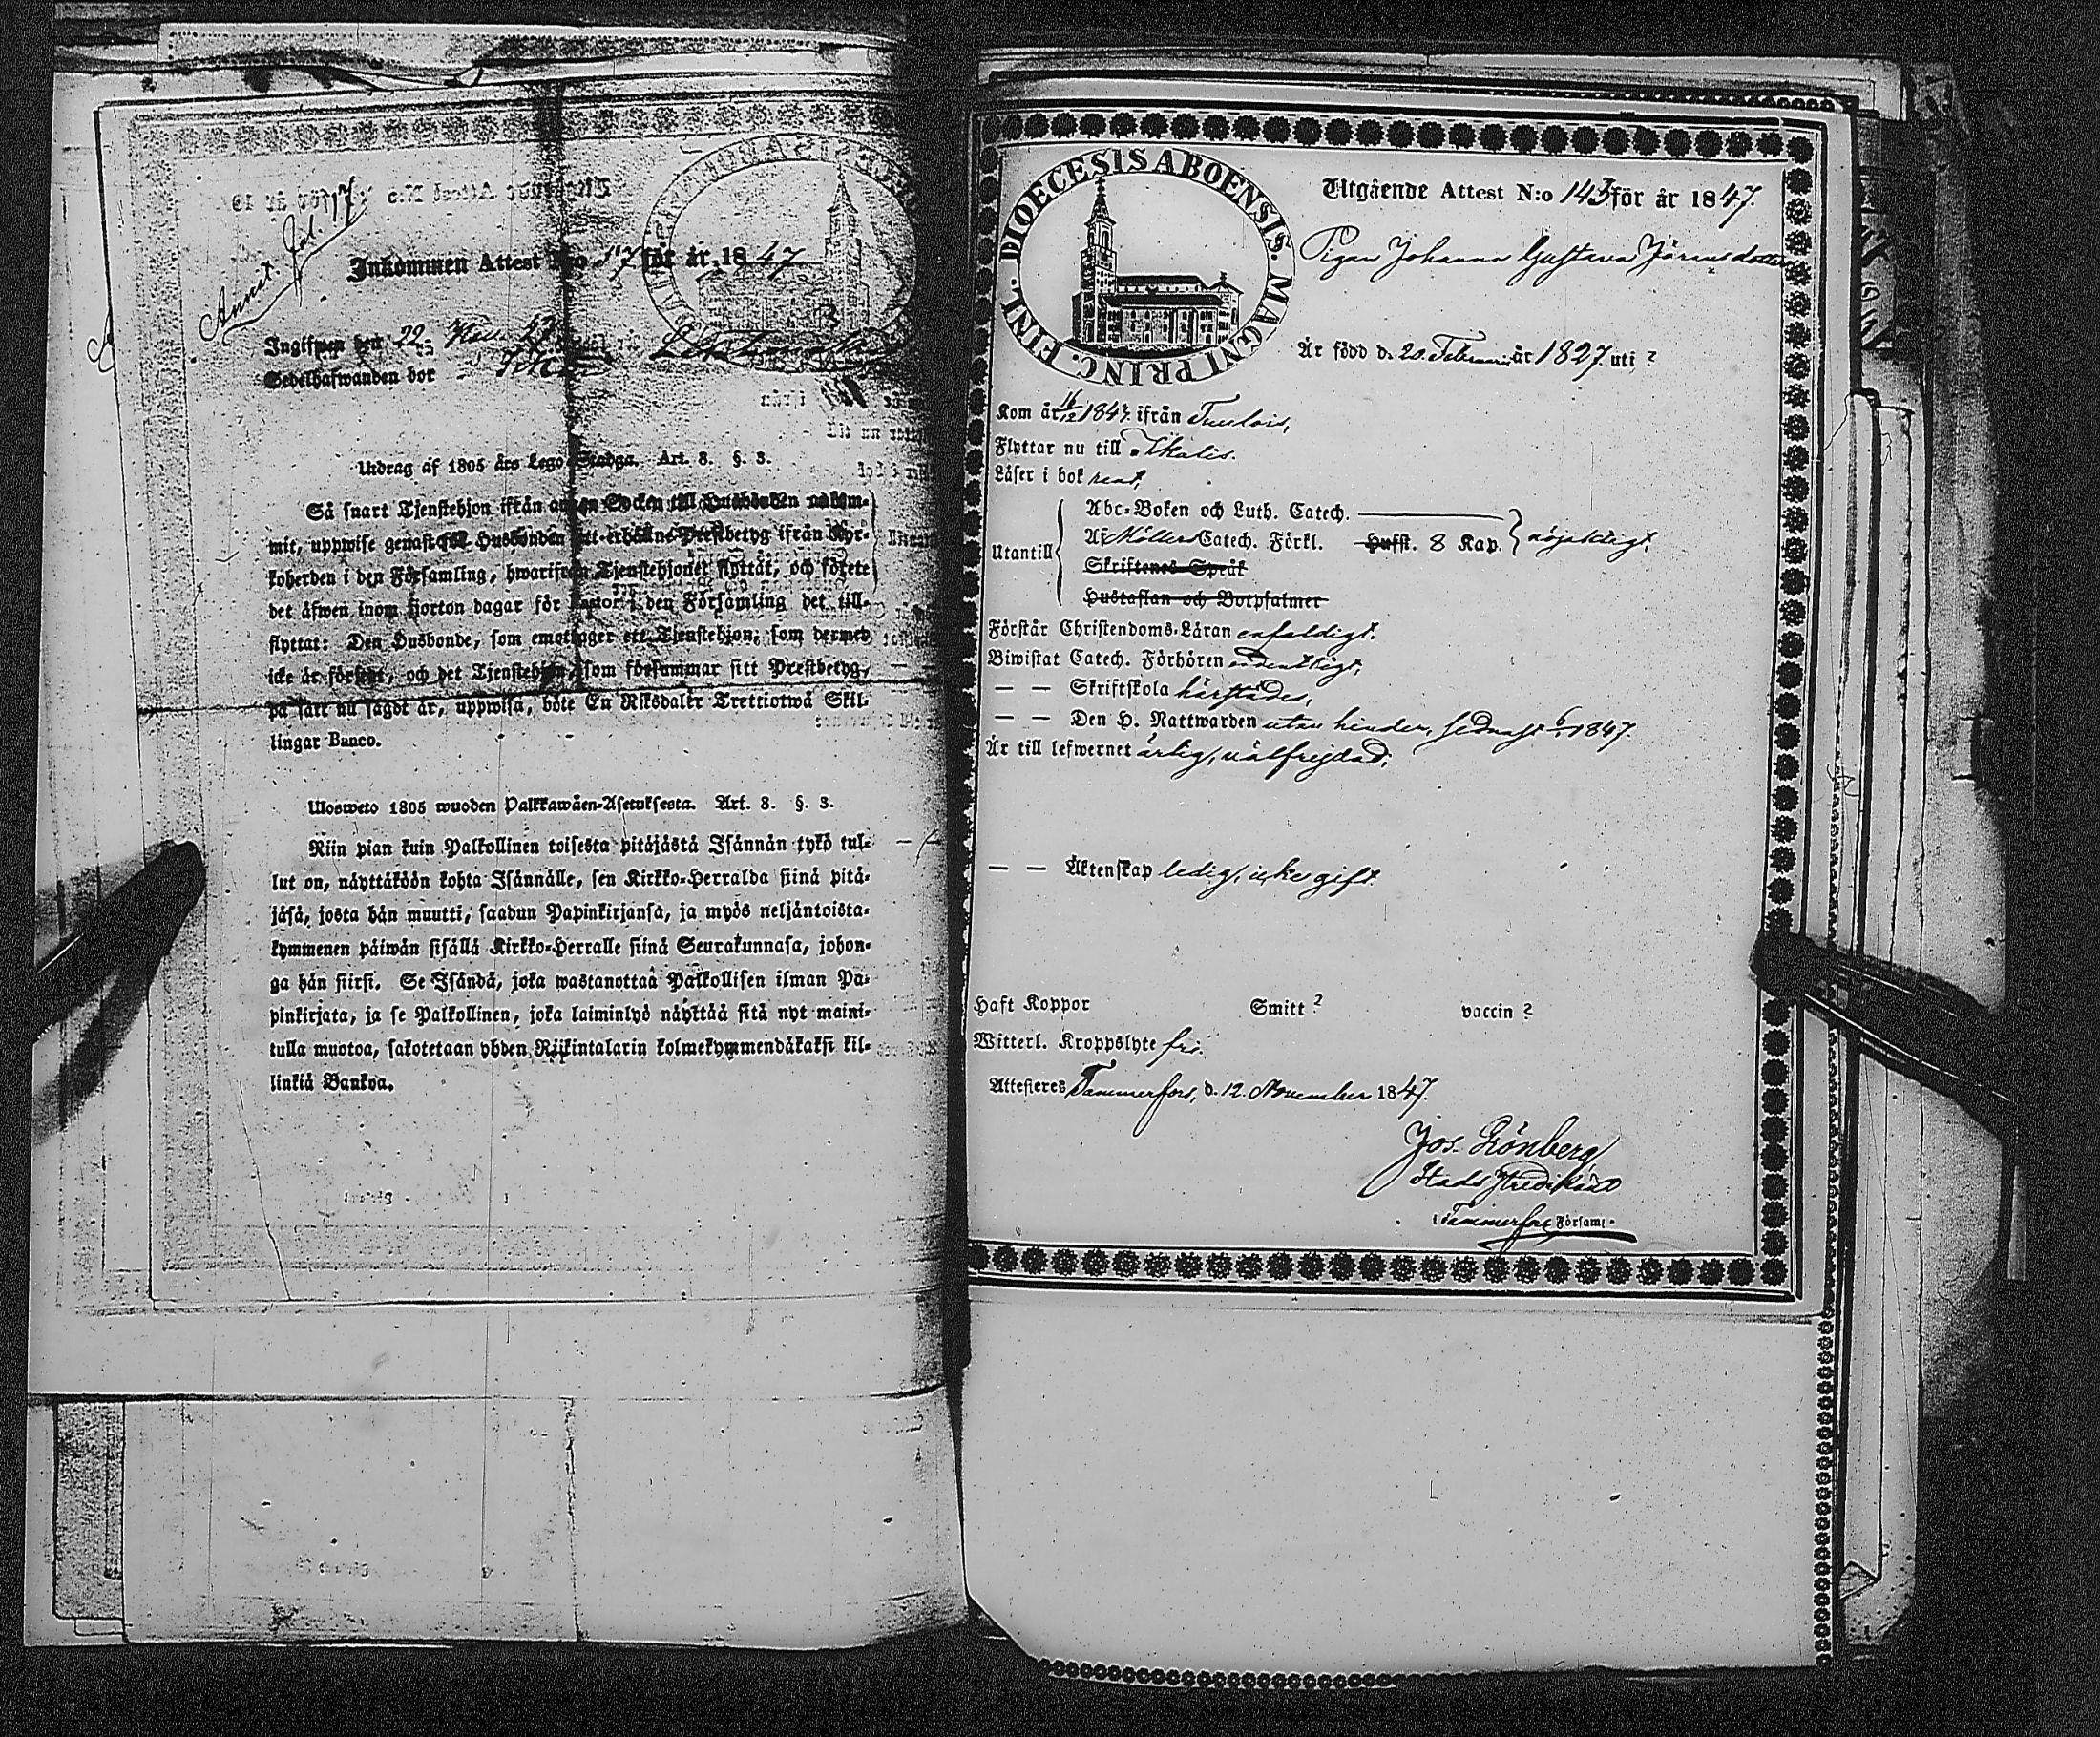 Annot. fol. 17
Inkommen Attest N:o 17 för år 1847
Ingifwen den 22 Nov. 47
Sedelhafwanden bor
Utdrag af 1805 års Lego-Stadga. Art. 8. §. 3.
Så snart Tjenstehjon ifrån annan Socken till Husbonden ankom-
mit, uppwise genast för Husbonden sitt erhållne Prestbetyg ifrån Kyr-
koherden i den Församling, hwarifrån Tjenstehjonet flyttat, och förete
det äfwen inom fjorton dagar för Pastor i den Församling det till-
flyttat: Den Husbonde, som emottager ett Tjenstehjon, som dermed
icke är försedt, och det Tjenstehjon, som försummar sitt Prestbetyg,
på sätt nu sagdt är, uppwisa, böte En Riksdaler Trettiotwå Skil-
lingar Banco.
Ulosweto 1805 wuoden Palkkawäen-Asetuksesta. Art. 8. §. 3.
Niin pian kuin Palkollinen toisesta pitäjästä Isännän tykö tul-
lut on, näyttäköön kohta Isännälle, sen Kirkko-Herralda siinä pitä-
jäsä, josta hän muutti, saadun Papinkirjansa, ja myös neljäntoista-
kymmenen päiwän sisällä Kirkko-Herralle siinä Seurakunnasa, johon-
ga hän siirsi. Se Isändä, joka wastanottaa Palkollisen ilman Pa-
pinkirjata, ja se Palkollinen, joka laiminlyö näyttää sitä nyt maini-
tulla muotoa, sakotetaan yhden Riikintalarin kolmekymmendäkaksi kil-
linkiä Bankoa.
DIOECESIS ABOENSIS. MAGNI PRINC. FINL.
Utgående Attest N:o 143 för år 1847.
Pigan Johanna Gustava Jöransdotter
Är född d. 20. Februari år 1827. uti ?
Kom år 16/12 1843. ifrån Tuulois,
Flyttar nu till Ikalis.
Läser i bok rent,
Utantill
Abc-Boken och Luth. Catech.
Af Möllers Catech. Förkl. Husst. 8 Kap. nöjaktigt,
Skriftenes Språk
Hustaflan och Botpsalmer
Förstår Christendoms-Läran enfaldigt.
Biwistat Catech. Förhören ordentligt,
— — Skriftskola härstädes,
— — Den H. Nattwarden utan hinder, sednast 1847
Är till lefwernet ärlig, välfrejdad,
— — Äktenskap ledig, icke gift.
Haft Koppor Smitt ? vaccin ?
Witterl. Kroppslyte fri.
Attesteras Tammerfors, d. 12. November 1847.
Jos. Grönberg
Stads Predikant
i Tammerfors Församl.